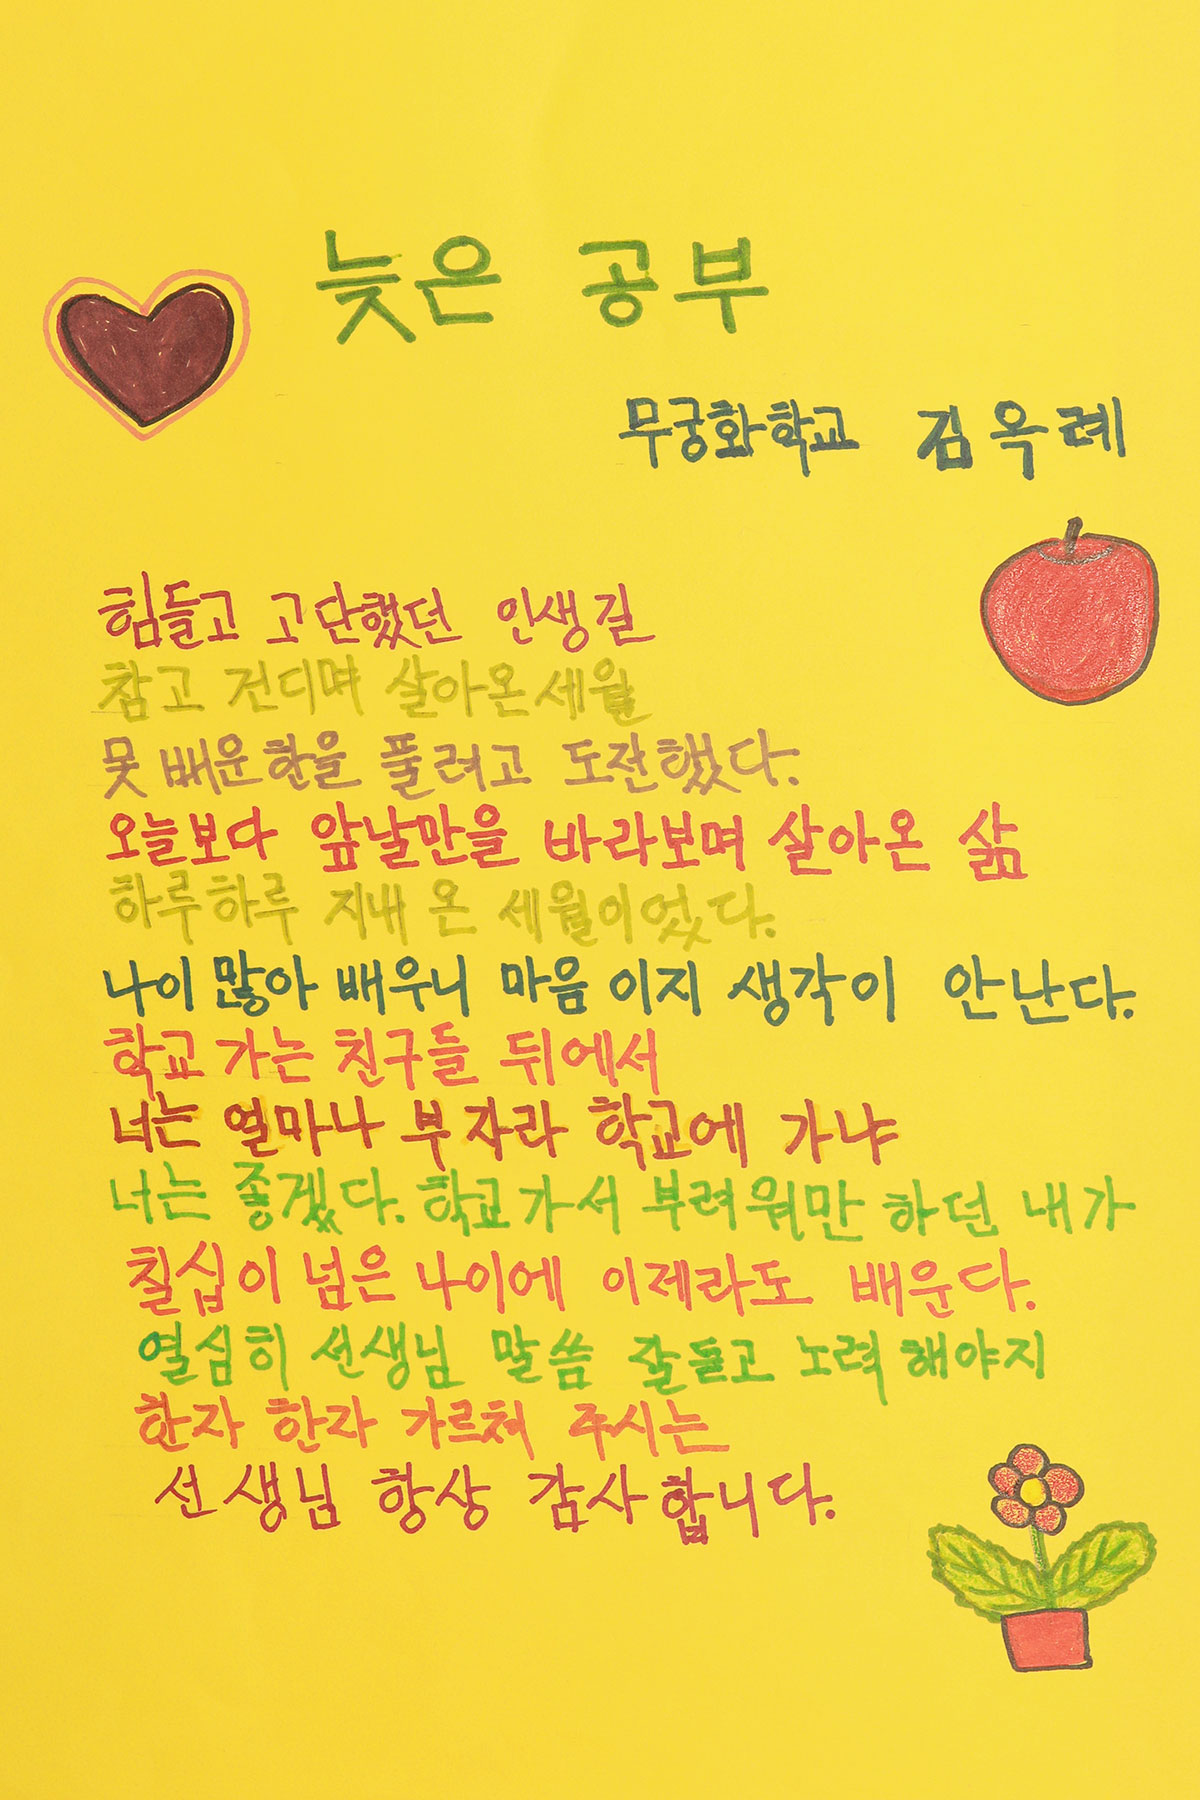 늦은 공부
무궁화학교 김옥례
힘들고 고단했던 인생길
참고 견디며 살아온세월
못배운한을 풀려고 도전했다.
오늘보다 앞날만을 바라보며 살아온 삶
하루하루 지내 온 세월이었다.
나이 많아 배우니 마음 이지 생각이 안난다.
학교 가는 친구들 뒤에서
너는 얼마나 부자라 학교에 가냐
너는 좋겠다. 학교가서 부려워만 하던 내가
칠십이 넘은 나이에 이제라도 배운다.
열심히 선생님 말씀 잘듣고 노력해야지
한자 한자 가르쳐 주시는
선생님 항상 감사합니다.